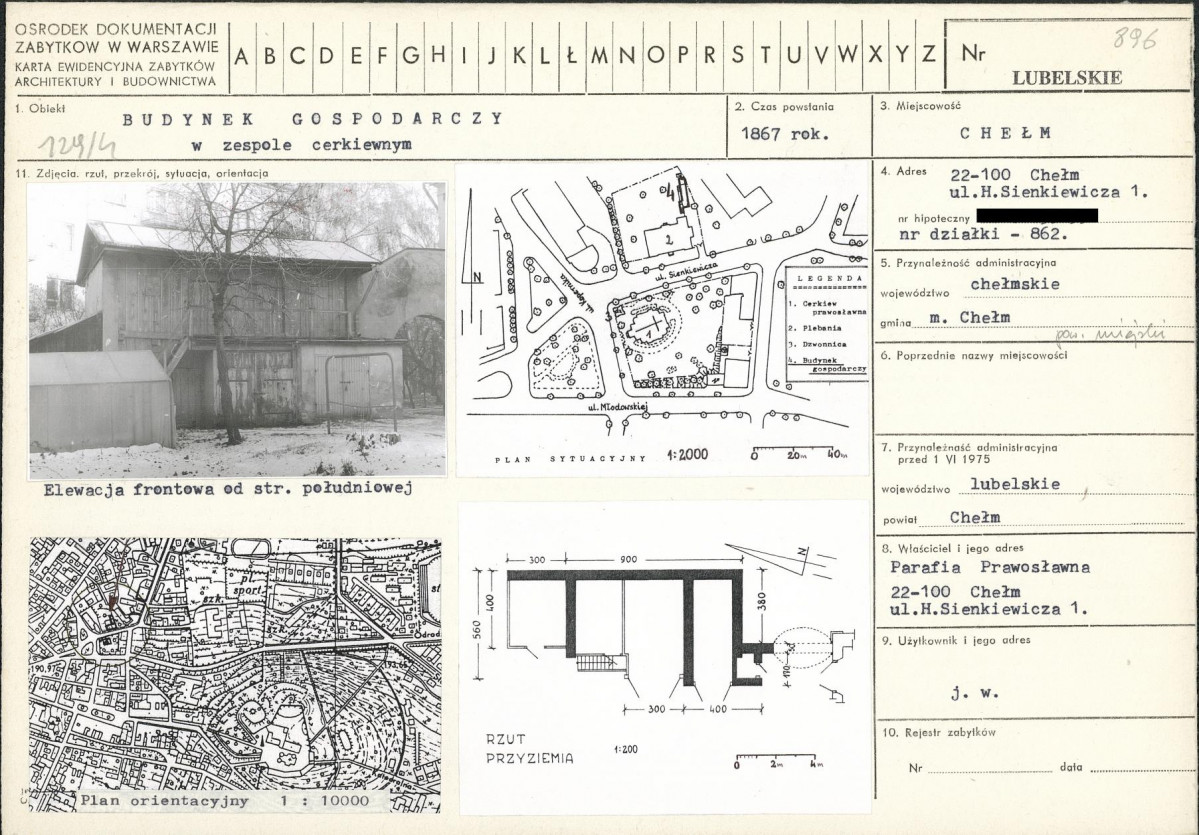 OŚRODEK DOKUMENTACJI
ZABYTKÓW W WARSZAWIE
KARTA EWIDENCYJNA ZABYTKÓW
ARCHITEKTURY I BUDOWNICTWA
A B C D E F G H I J K L Ł M N O P R S T U V W X Y Z
Nr
896
LUBELSKIE
1. Obiekt
BUDYNEK GOSPODARCZY
w zespole cerkiewnym
129/4
2. Czas powstania
1867 rok.
3. Miejscowość
CHEŁM
11. Zdjęcia, rzut, przekrój, sytuacja, orientacja
Elewacja frontowa od str. południowej
N
4
2
3
ul. Sienkiewicza
ul. Kopernika
ul. Młodowskiej
LEGENDA
1. Cerkiew
prawosławna
2. Plebania
3. Dzwonnica
4. Budynek
gospodarczy
PLAN SYTUACYJNY 1:2000
0 20m 40m
pl.
sport.
szk.
szk.
st
Odrod
190,9
193,6
Plan orientacyjny 1 : 10000
300 900
N
560
400
380
170
300 400
RZUT
PRZYZIEMIA
1:200
0 2m 4m
4. Adres 22-100 Chełm
ul.H.Sienkiewicza 1.
nr hipoteczny
nr działki - 862.
5. Przynależność administracyjna
województwo chełmskie
gmina m. Chełm
pow. miejski
6. Poprzednie nazwy miejscowości
7. Przynależność administracyjna
przed 1 VI 1975
województwo lubelskie
powiat Chełm
8. Właściciel i jego adres
Parafia Prawosławna
22-100 Chełm
ul.H.Sienkiewicza 1.
9. Użytkownik i jego adres
j. w.
10. Rejestr zabytków
Nr data